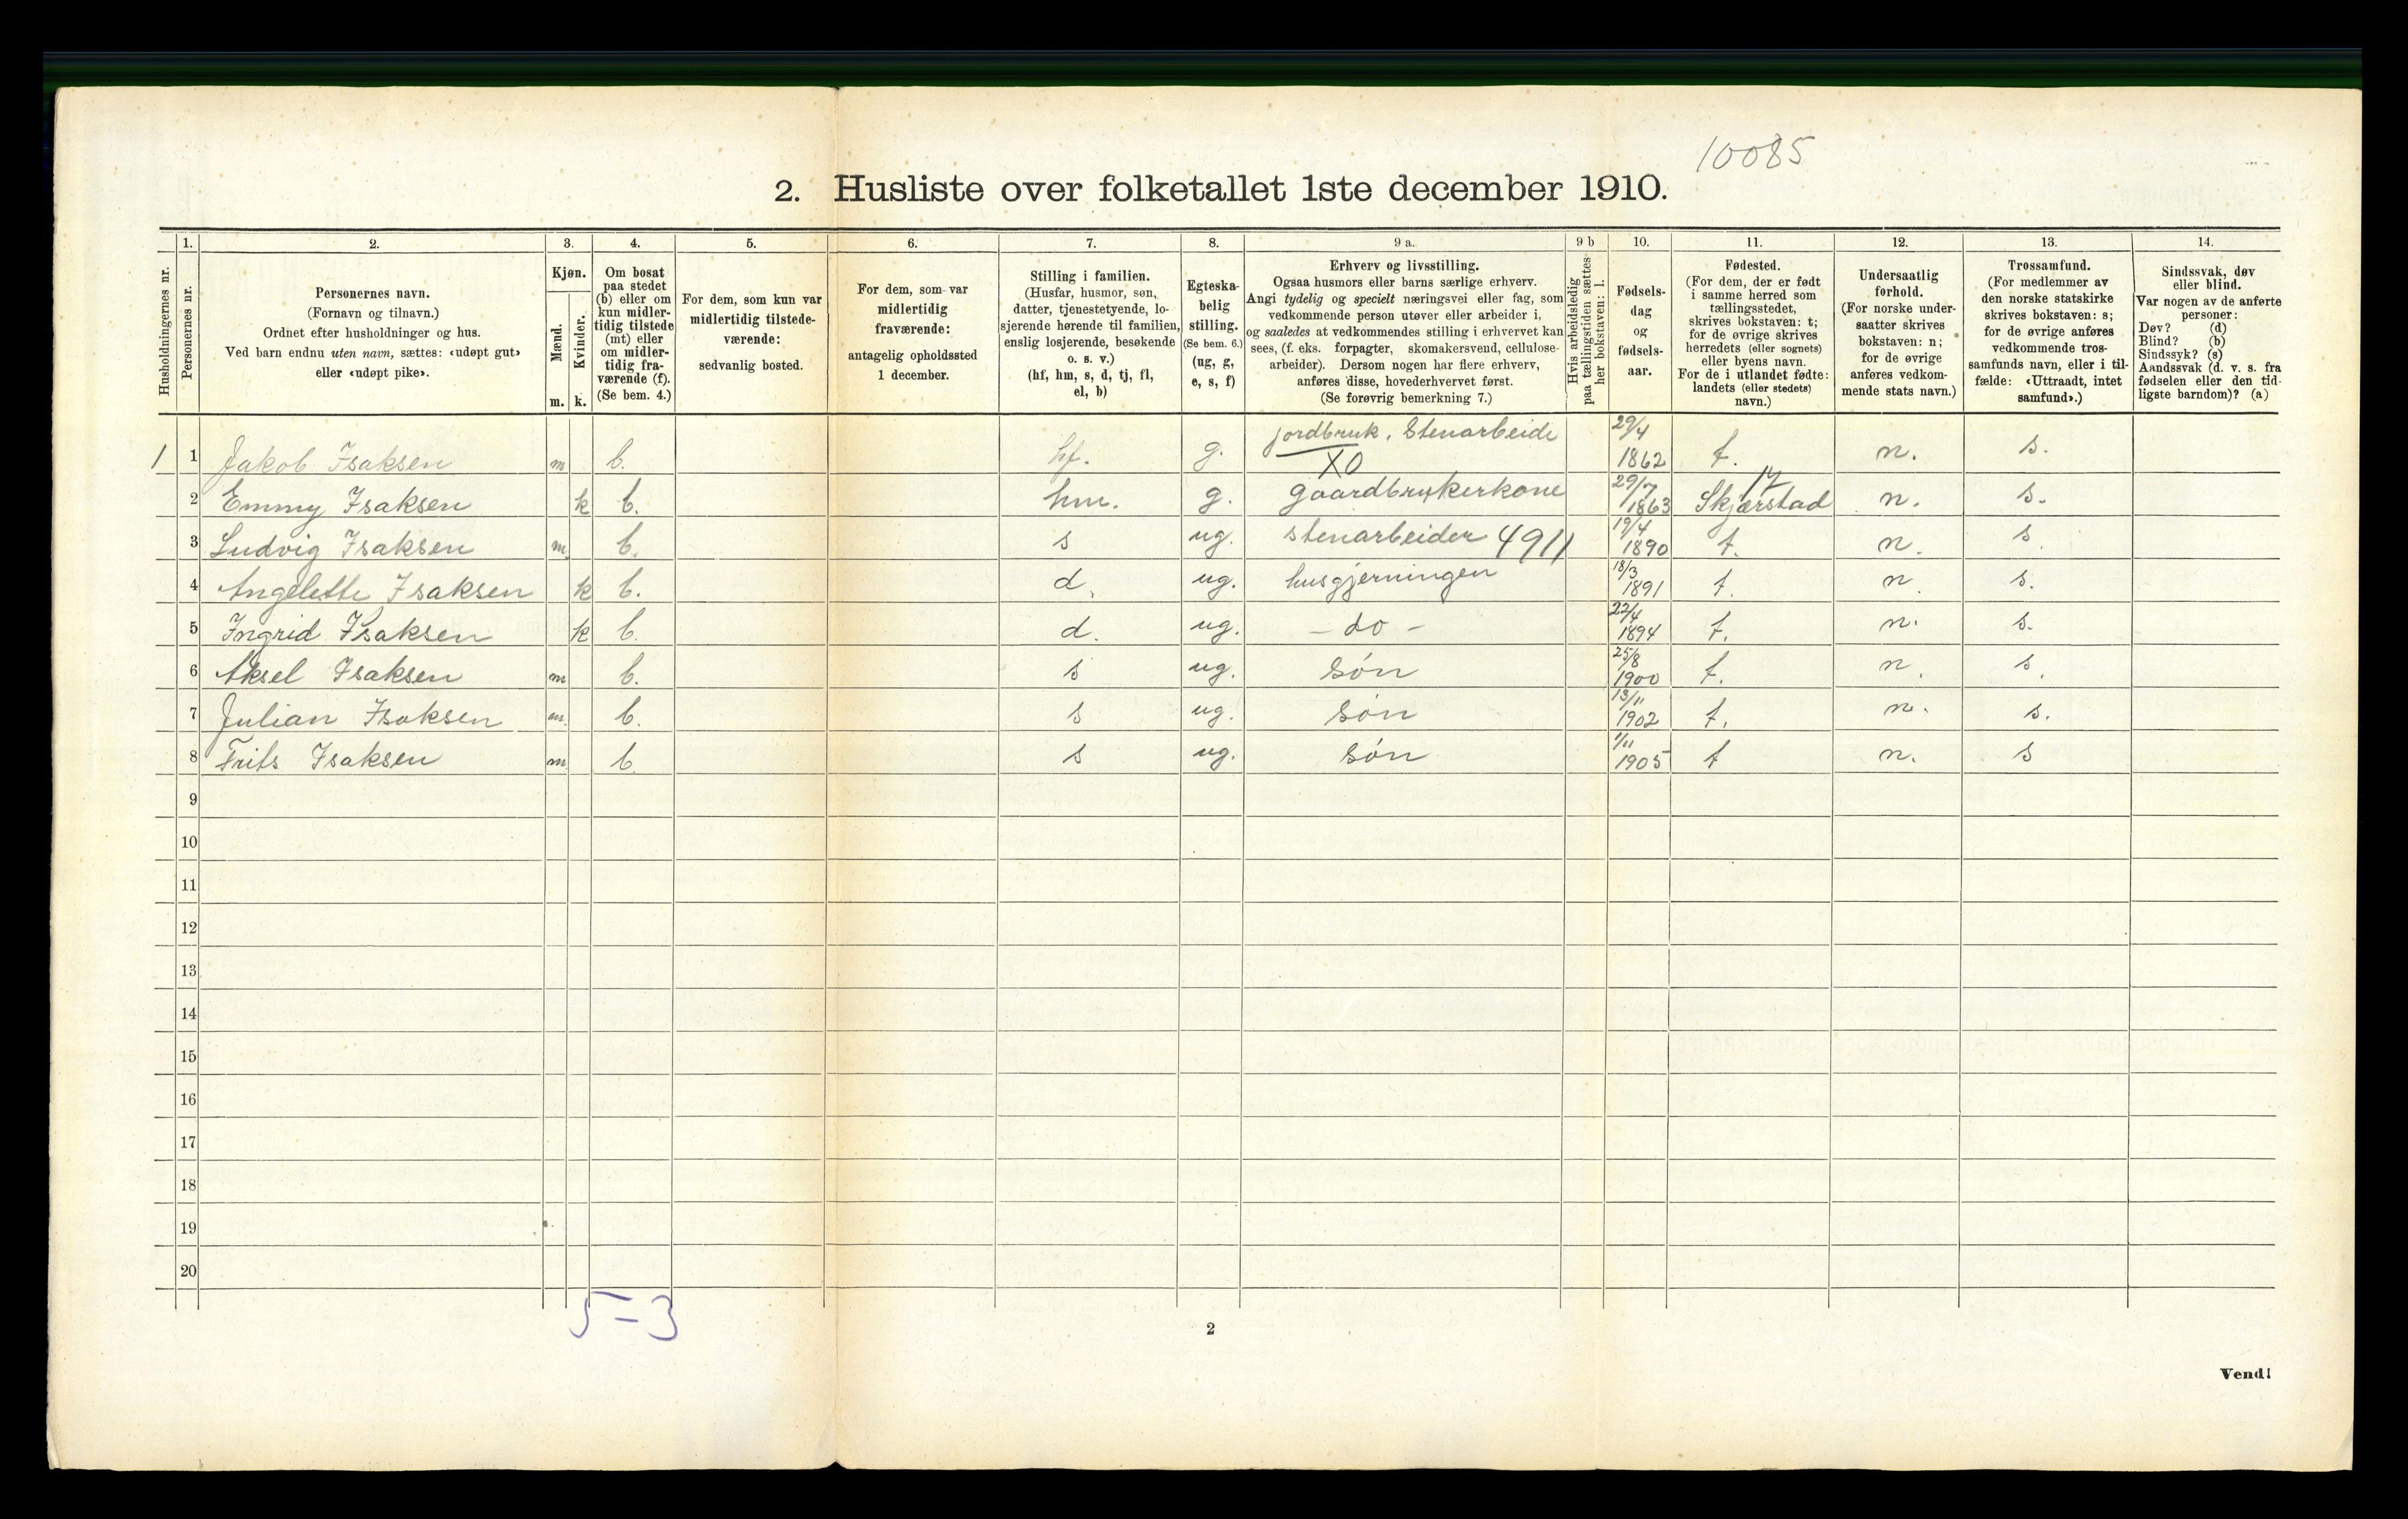 10085
2. Husliste over folketallet 1ste december 1910.
1. 2. 3. 4. 5. 6. 7. 8. 9 a. 9 b 10. 11. 12. 13. 14.
Husholdningernes nr.
Personernes nr.
Personernes navn.
(Fornavn og tilnavn.)
Ordnet efter husholdninger og hus.
Ved barn endnu uten navn, sættes: «udøpt gut»
eller «udøpt pike».
Kjøn.
Mænd.
Kvinder.
m. k.
Om bosat
paa stedet
(b) eller om
kun midler-
tidig tilstede
(mt) eller
om midler-
tidig fra-
værende (f).
(Se bem. 4.)
For dem, som kun var
midlertidig tilstede-
værende:
sedvanlig bosted.
For dem, som var
midlertidig
fraværende:
antagelig opholdssted
1 december.
Stilling i familien.
(Husfar, husmor, søn,
datter, tjenestetyende, lo-
sjerende hørende til familien,
enslig losjerende, besøkende
o. s. v.)
(hf, hm, s, d, tj, fl,
el, b)
Egteska-
belig
stilling.
(Se bem. 6.)
(ug, g,
e, s, f)
Erhverv og livsstilling.
Ogsaa husmors eller barns særlige erhverv.
Angi tydelig og specielt næringsvei eller fag, som
vedkommende person utøver eller arbeider i,
og saaledes at vedkommendes stilling i erhvervet kan
sees, (f. eks. forpagter, skomakersvend, cellulose-
arbeider). Dersom nogen har flere erhverv,
anføres disse, hovederhvervet først.
(Se forøvrig bemerkning 7.)
Hvis arbeidsledig
paa tællingstiden sættes
her bokstaven: l.
Fødsels-
dag
og
fødsels-
aar.
Fødested.
(For dem, der er født
i samme herred som
tællingsstedet,
skrives bokstaven: t;
for de øvrige skrives
herredets (eller sognets)
eller byens navn.
For de i utlandet fødte:
landets (eller stedets)
navn.)
Undersaatlig
forhold.
(For norske under-
saatter skrives
bokstaven: n;
for de øvrige
anføres vedkom-
mende stats navn.)
Trossamfund.
(For medlemmer av
den norske statskirke
skrives bokstaven: s;
for de øvrige anføres
vedkommende tros-
samfunds navn, eller i til-
fælde: «Uttraadt, intet
samfund».)
Sindssvak, døv
eller blind.
Var nogen av de anførte
personer:
Døv? (d)
Blind? (b)
Sindssyk? (s)
Aandssvak (d. v. s. fra
fødselen eller den tid-
ligste barndom)? (a)
1 1 Jakob Isaksen m b. hf. g. jordbruk, Stenarbeide X0 29/4 1862 t. n. s.
2 Emmy Isaksen k b. hm. g. gaardbrukerkone 29/7 1863 Skjærstad n. s.
3 Ludvig Isaksen m. b. s ug. stenarbeider 4911 19/4 1890 t. n. s
4 Angelette Isaksen k b. d. ug. husgjerningen 18/3 1891 t. n s.
5 Ingrid Isaksen k b. d. ug. - do - 22/4 1894 t. n. s.
6 Aksel Isaksen m b. s ug. Søn 25/8 1900 t. n. s.
7 Julian Isaksen m. b. s ug. Søn 13/11 1902 t. n. s.
8 Frits Isaksen m b. s ug. Søn 1/11 1905 t n. s
9
10
11
12
13
14
15
16
17
18
19
20
5-3
2
Vend!